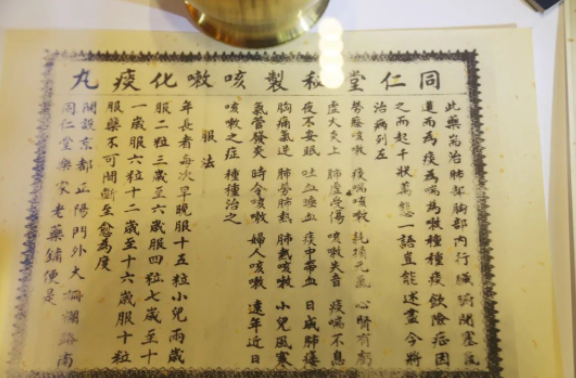 同仁堂秘製咳嗽化痰丸
此藥耑治肺部胸部內行臟腑閉塞氣
道而為痰為喘為嗽種種痰飲險症因
之而起千狀萬態一語豈能述盡今將
治病列左
勞瘵咳嗽 痰喘咳嗽 耗損元氣 心腎有虧
虛火炎上 肺虛受傷 咳嗽失音 痰喘不息
夜不安眠 吐血唾血 痰中帶血 日咸肺痿
胸痛氣逆 肺勞肺熱 肺熱咳嗽 小兒風寒
氣管發炎 時令咳嗽 婦人咳嗽 遠年近日
咳嗽之症 種種治之
服法
年長者每次早晚服十五粒小兒兩歲
服二粒三歲至六歲服四粒七歲至十
一歲服六粒十二歲至十六歲服十粒
服藥不可間斷至愈為度
開設京都正陽門外大柵欄路南
同仁堂樂家老藥鋪便是